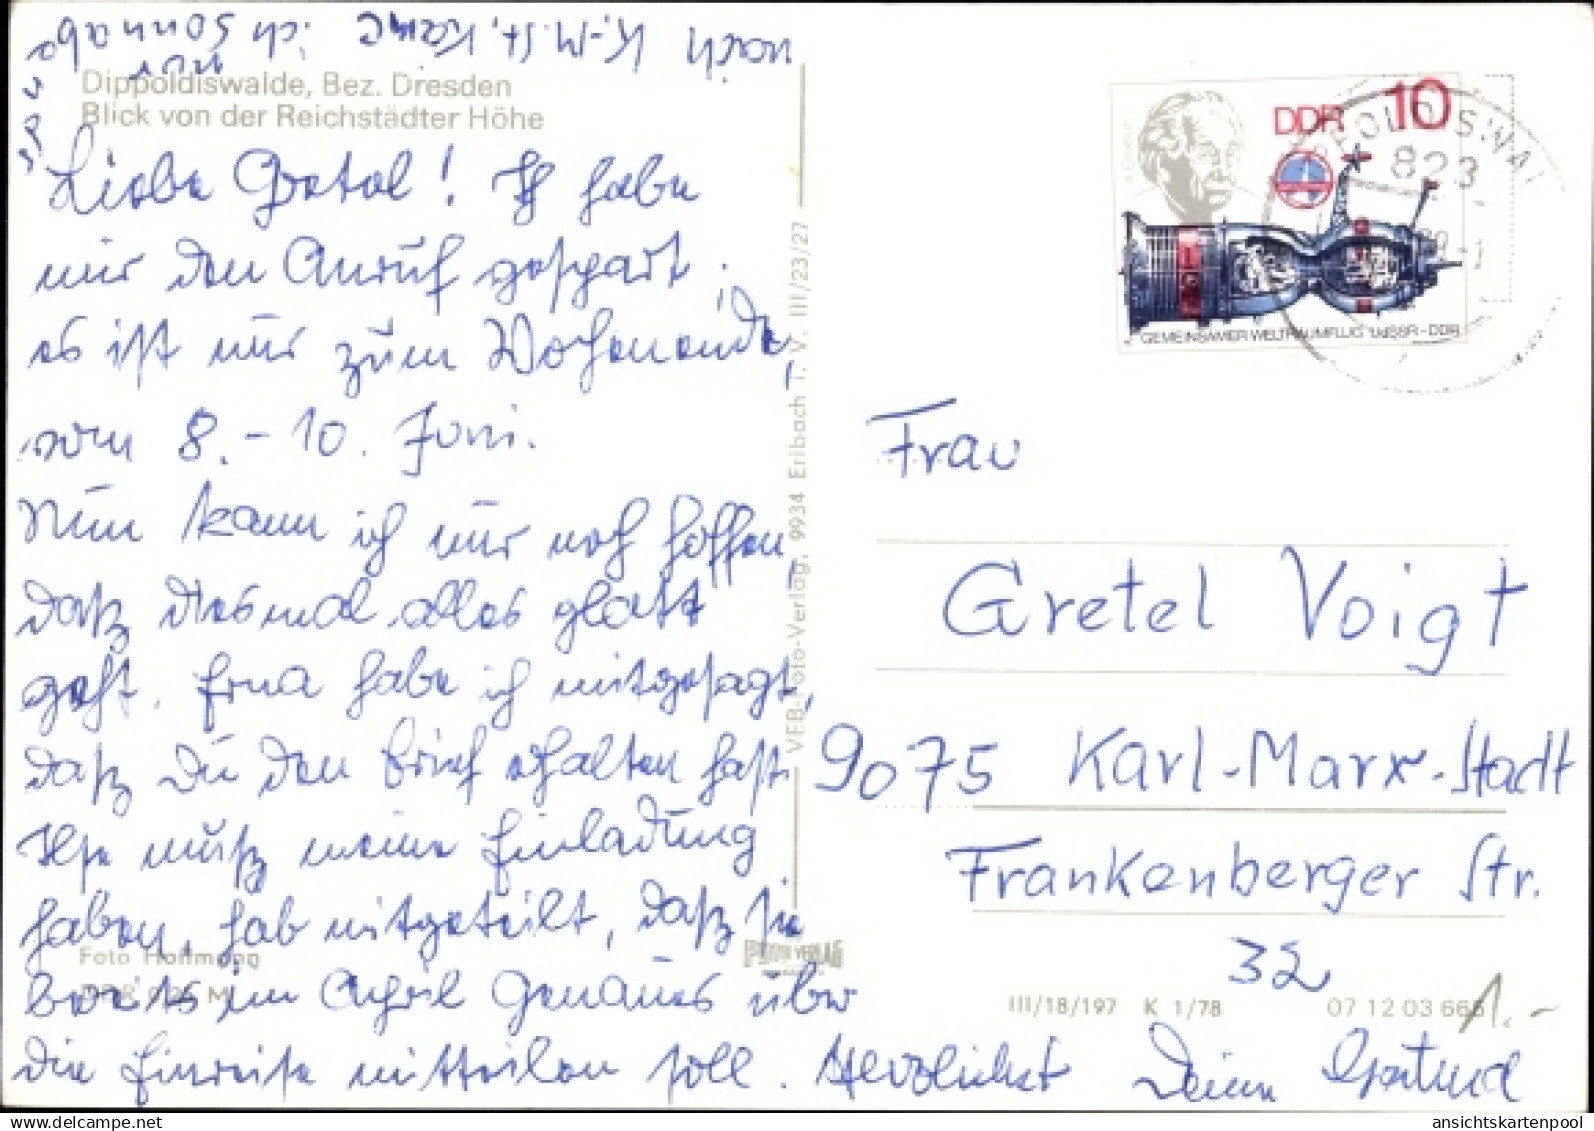 Dippoldiswalde, Bez. Dresden
Blick von der Reichstädter Höhe
Liebe Gretel! Ich habe
mir den Anruf gespart,
es ist nur zum Wochenende
vom 8. - 10. Juni.
Nun kann ich nur noch hoffen,
daß diesmal alles glatt
geht. Erna habe ich mitgesagt,
daß Du den Brief erhalten hast.
Ilse muß meine Einladung
haben, hab mitgeteilt, daß sie
bereits im April Genaues über
die Einreise mitteilen soll. Herzlichst Deine Gertrud
nach K.-M.St. käme ich
nur
Foto Hoffmann
VEB Foto-Verlag, 9934 Erlbach i. V. III/23/27
FOTO VERLAG
DDR 10
823
GEMEINSAMER WELTRAUMFLUG UdSSR-DDR
Frau
Gretel Voigt
9075 Karl-Marx-Stadt
Frankenberger Str.
32
III/18/197 K 1/78 07 12 03 666
1.-
ansichtskartenpool